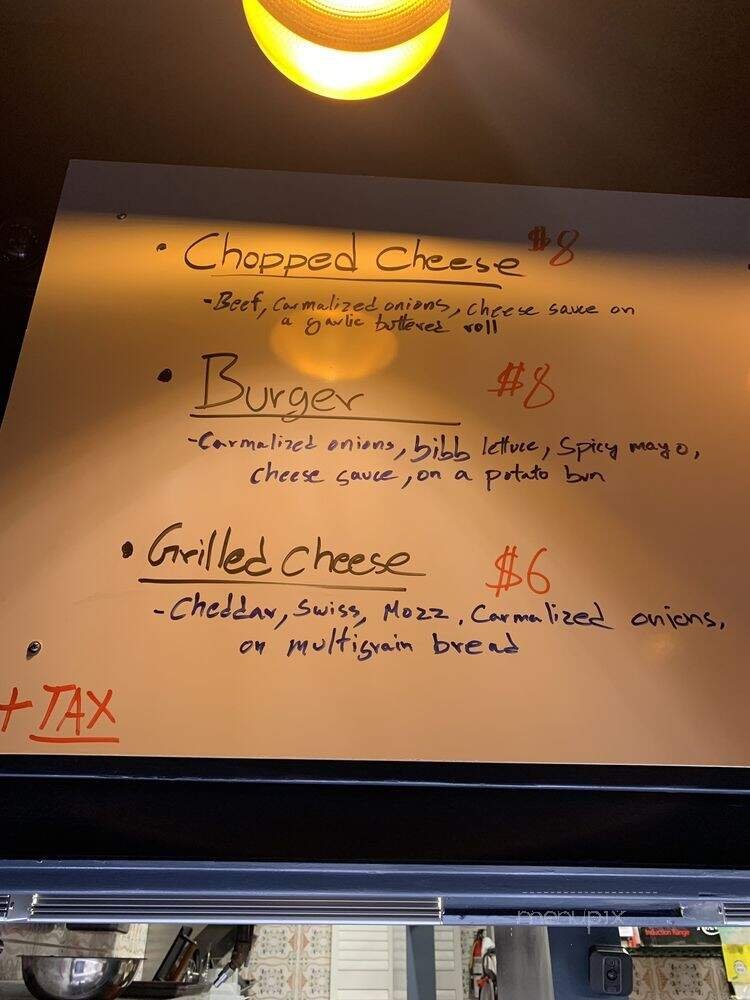 • Chopped Cheese $8
- Beef, Carmalized onions, cheese sauce on
a garlic buttered roll
• Burger $8
- Carmalized onions, bibb lettuce, Spicy mayo,
cheese sauce, on a potato bun
• Grilled Cheese $6
- Cheddar, Swiss, Mozz, Carmalized onions,
on multigrain bread
+ TAX
menupix
Induction Range